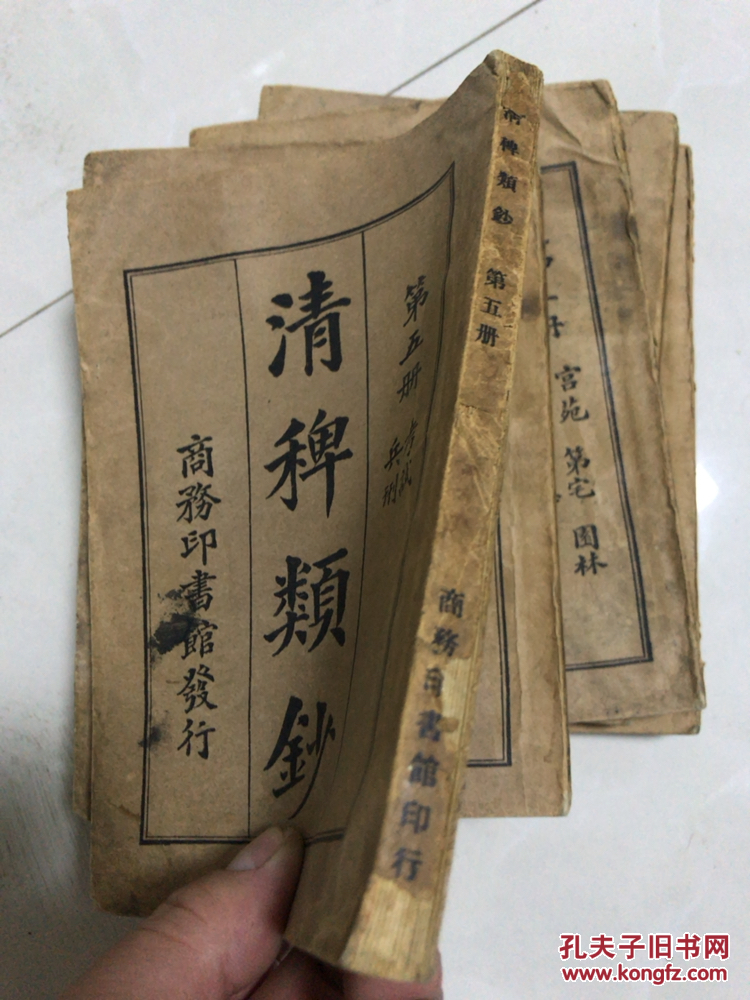 第五冊
考試
兵刑
清稗類鈔
商務印書館發行
清稗類鈔 第五冊
商務印書館印行
宮苑 第宅 園林
孔夫子旧书网
www.kongfz.com